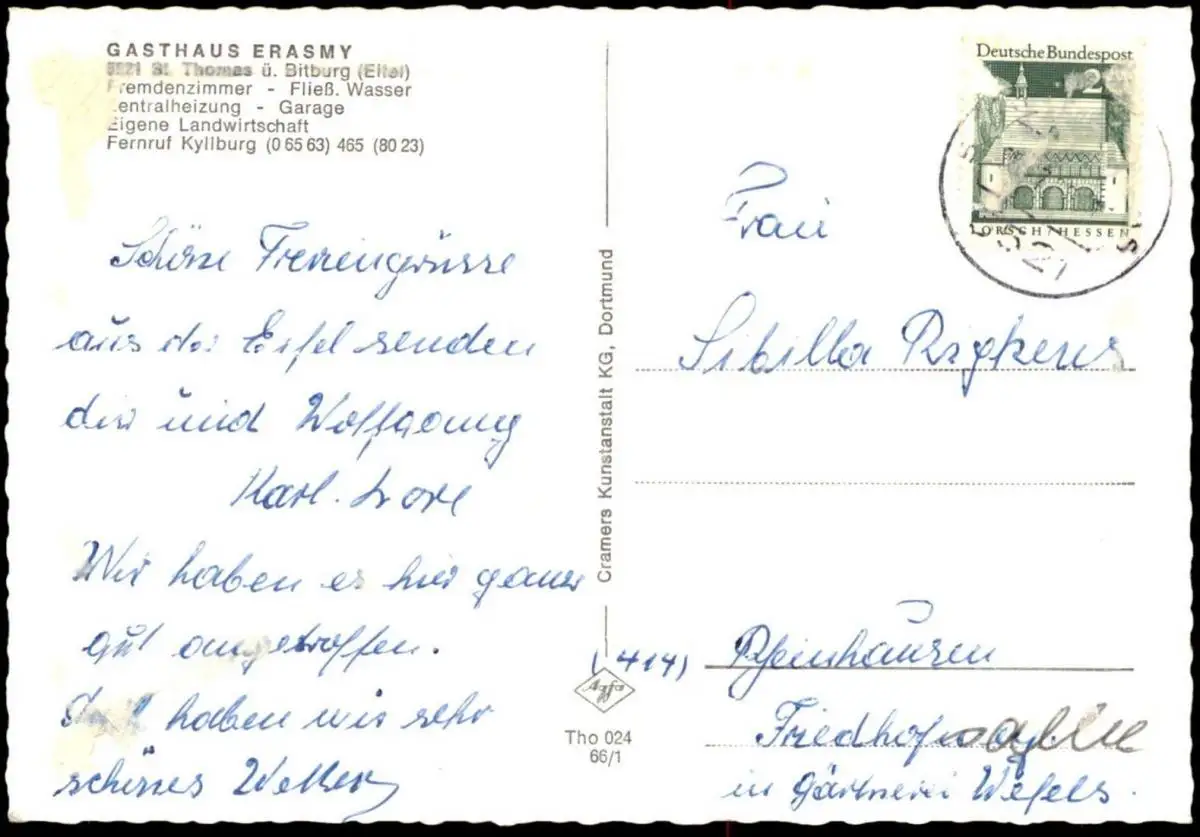 GASTHAUS ERASMY
5521 St. Thomas ü. Bitburg (Eifel)
Fremdenzimmer - Fließ. Wasser
Zentralheizung - Garage
Eigene Landwirtschaft
Fernruf Kyllburg (0 65 63) 465 (80 23)
Schöne Feriengrüsse
aus der Eifel senden
dir und Wolfgang
Karl. Lore
Wir haben es hier ganz
gut angetroffen.
haben wir sehr
schönes Wetter
Cramers Kunstanstalt KG, Dortmund
Agfa
Tho 024
66/1
Deutsche Bundespost
LORSCH/HESSEN
Frau
Sibilla
(414) Rheinhausen
Friedhofsallee
in Gärtnerei Wefels.